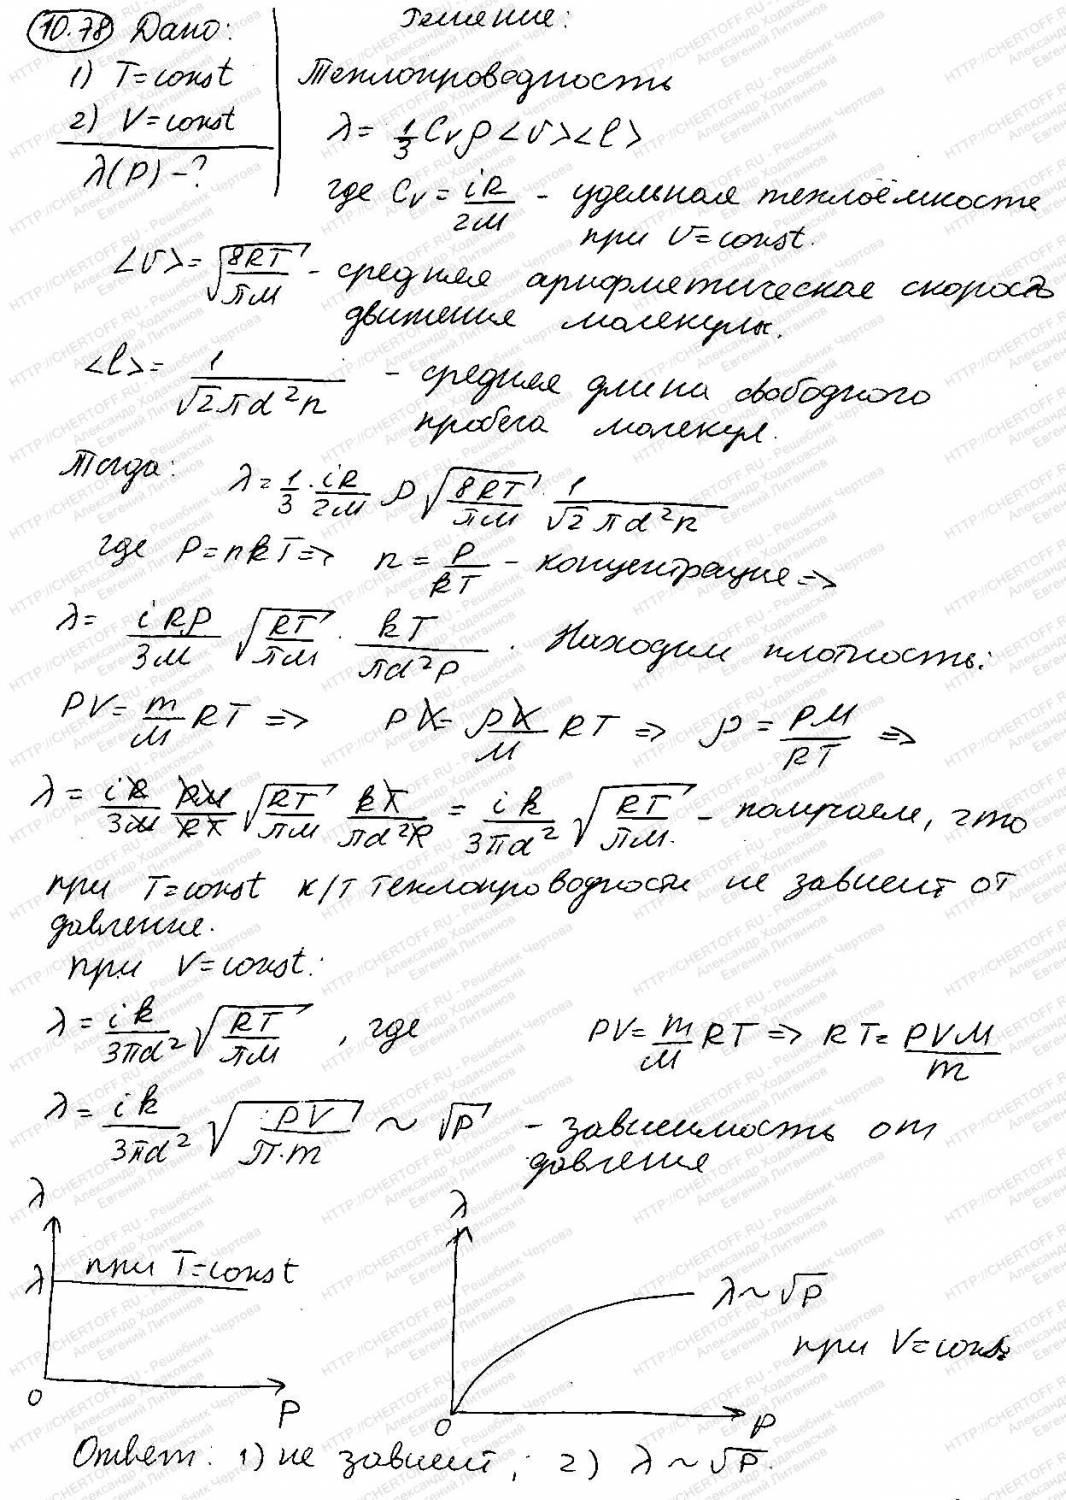 10.78 Дано:
1) T=const
2) V=const
λ(P)-?
Решение:
Теплопроводность
λ = 1/3 Cv ρ <v><l>
где Cv = iR/2M - удельная теплоёмкость
при V=const.
<v> = √(8RT/πM) - средняя арифметическая скорость
движения молекулы.
<l> = 1/(√2πd²n) - средняя длина свободного
пробега молекул.
Тогда: λ = 1/3 · iR/2M ρ √(8RT/πM) · 1/(√2πd²n)
где P=nkT => n = P/kT - концентрация =>
λ = iRρ/3M √(RT/πM) · kT/(πd²P). Находим плотность:
PV = m/M RT => PV = ρV/M RT => ρ = PM/RT =>
λ = iR/3M PM/RT √(RT/πM) kT/(πd²P) = ik/(3πd²) √(RT/πM) - получаем, что
при T=const к/т теплопроводности не зависит от
давление.
при V=const:
λ = ik/(3πd²) √(RT/πM), где PV = m/M RT => RT = PVM/m
λ = ik/(3πd²) √(PV/π·m) ~ √P - зависимость от
давления
λ
λ при T=const
0
P
λ
λ~√P
при V=const
0
P
Ответ: 1) не зависит; 2) λ~√P.
HTTP://CHERTOFF.RU - Решебник Чертова
Александр Ходаковский
Евгений Литвинов